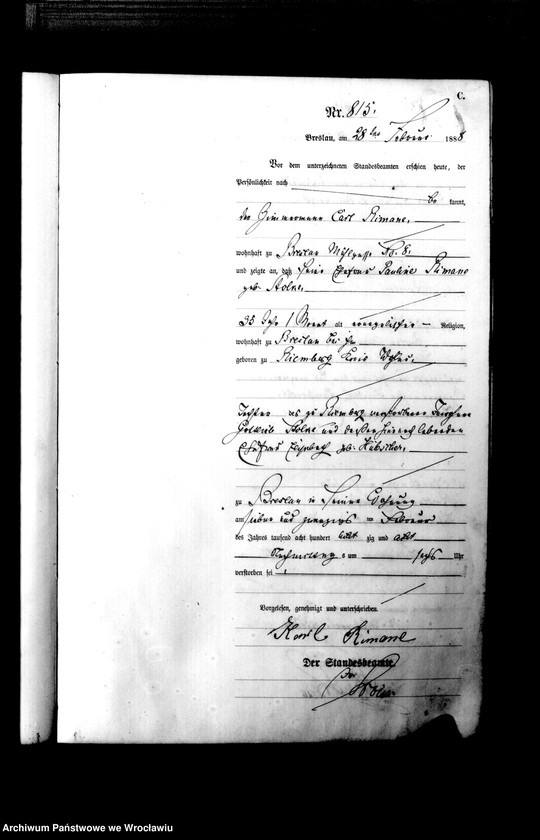 C.
Nr. 815.
Breslau, am 28ten Februar 1888
Vor dem unterzeichneten Standesbeamten erschien heute, der
Persönlichkeit nach
be kannt,
der Zimmermann Carl Rimane,
wohnhaft zu Breslau No. 8.
und zeigte an, daß seine Ehefrau Pauline Rimane
geb. Stolze,
35 Jahr 1 Monat alt evangelischer Religion,
wohnhaft zu Breslau bei ihm
geboren zu Riemberg Kreis Wohlau,
Tochter des zu Riemberg verstorbenen
Gottlieb Stolze und dessen lebenden
Ehefrau Elisabeth geb. Hübscher,
zu Breslau in seiner Wohnung
am sieben und zwanzigs ten Februar
des Jahres tausend acht hundert acht zig und acht
Nachmittag s um sechs Uhr
verstorben sei
Vorgelesen, genehmigt und unterschrieben.
Karl Rimane
Der Standesbeamte.
Archiwum Państwowe we Wrocławiu